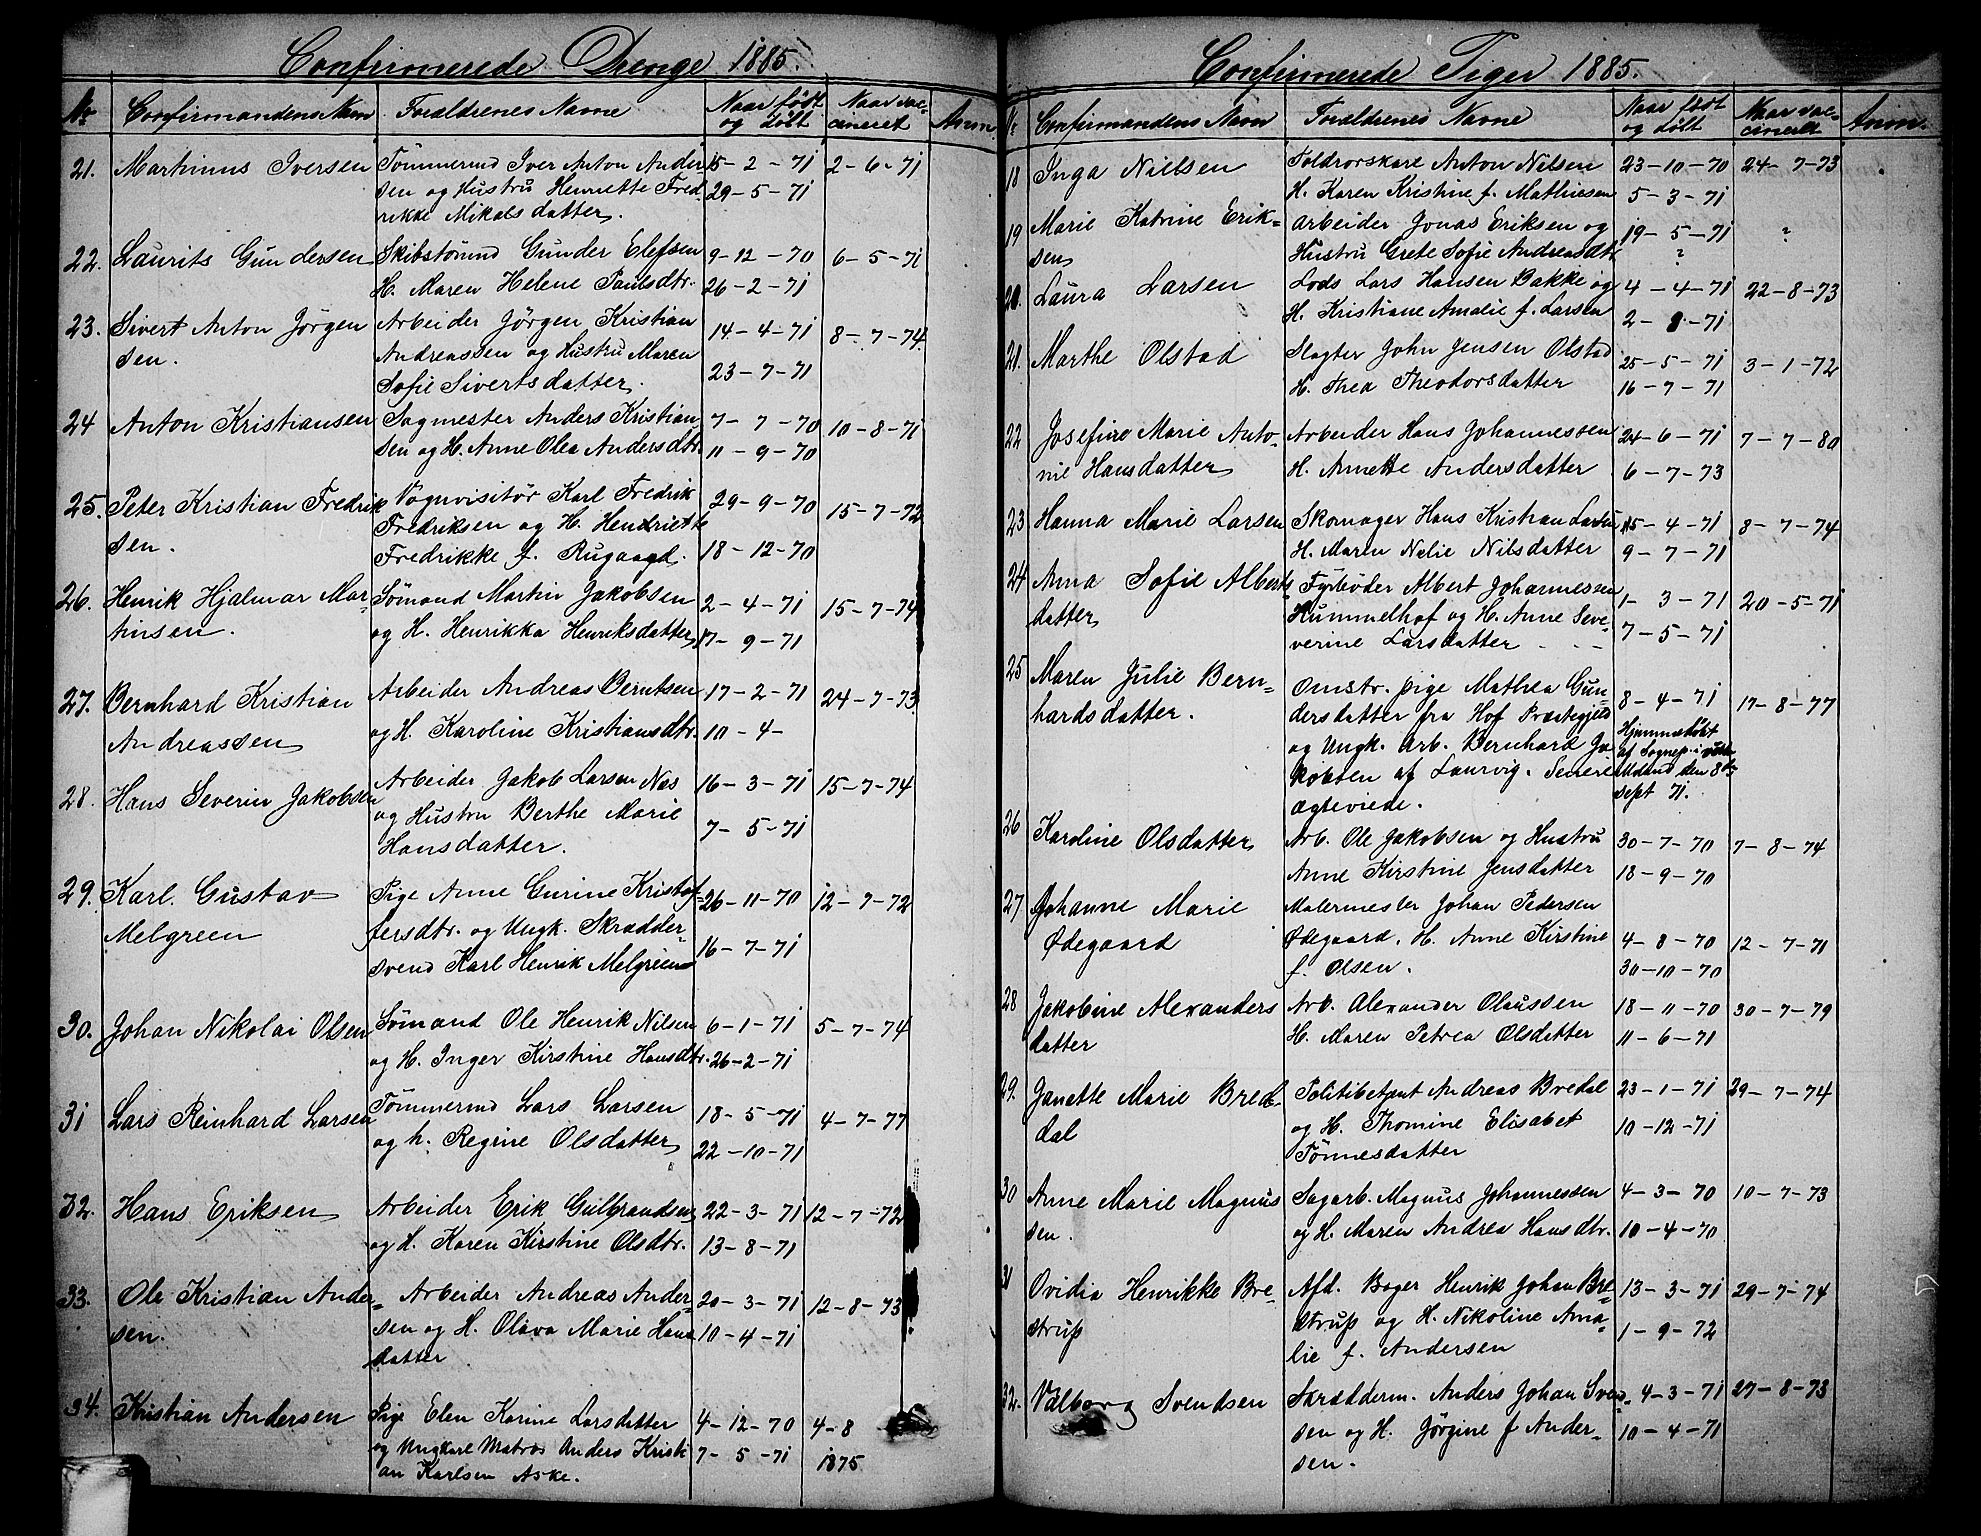 Confirmerede Drenge 1885.
No Confirmandens Navn Forældrenes Navne Naar født og døbt Naar vaccineret Anm
21. Martinus Iversen Tömmermd Iver Anton Ander 15-2-71 2-6-71
sen og Hustru Henriette Fred 29-5-71
rikke Mikals datter.
22. Laurits Gundersen Skibstömd Gunder Elefsen 9-12-70 6-5-71
H. Maren Helene Paulsdtr. 26-2-71
23. Sivert Anton Jörgen Arbeider Jörgen Kristian 14-4-71 8-7-74
sen. Andreassen og Hustru Maren
Sofie Siverts datter. 23-7-71
24 Anton Kristiansen Sagmester Anders Kristian 7-7-70 10-8-71
sen og H. Anne Olea Andersdtr. 11-9-70
25. Peter Kristian Fredrik Vognvisitör Karl Fredrik 29-9-70 15-7-72
sen. Fredriksen og H. Hendriette
Fredrikke f. Rugaagd. 18-12-70
26. Henrik Hjalmar Mar Sömand Martin Jakobsen 2-4-71 15-7-74
tinsen. og H. Henrikka Henriksdatter 17-9-71
27. Bernhard Kristian Arbeider Andreas Berntsen 17-2-71 24-7-73
Andreassen og H. Karoline Kristiansdtr. 10-4-
28. Hans Severin Jakobsen Arbeider Jakob Larsen Næs 16-3-71 15-7-74
og Hustru Berthe Marie 7-5-71
Hansdatter.
29. Karl Gustav Pige Anne Gurine Kristof 26-11-70 12-7-72
Melgreen fersdtr. og Ungk. Skrædder- 16-7-71
svend Karl Henrik Melgreen
30. Johan Nikolai Olsen Sömand Ole Henrik Nilsen 6-1-71 5-7-74
og H. Inger Kirstine Hansdtr. 26-2-71
31 Lars Reinhard Larsen Tömmermd Lars Larsen 18-5-71 4-7-77
og h. Regine Olsdatter 22-10-71
32. Hans Eriksen Arbeider Erik Gulbrandsen 22-3-71 12-7-72
og H. Karen Kirstine Olsdtr. 13-8-71
33. Ole Kristian Ander- Arbeider Andreas Ander- 20-3-71 12-8-73
sen. sen og H. Olava Marie Hans 10-4-71
datter
34. Kristian Andersen Pige Elen Karine Larsdatter 4-12-70 4-8
og Ungkarl Matros Anders Kristi 7-5-71 1875
an Karlsen Aske.
Confirmerede Piger 1885.
Nr Confirmandens Navn Forældrenes Navne Naar født og døbt Naar vaccineret Anm.
18 Inga Nielsen Toldrorskarl Anton Nilsen 23-10-70 24-7-73
H. Karen Kristine f. Mathiesen 5-3-71
19 Marie Katrine Erik= Arbeider Jonas Eriksen og 19-5-71 ?
sen Hustru Grete Sofie Andreasdtr ?
20. Laura Larsen Lods Lars Hansen Bakke og 4-4-71 22-8-73
H. Kristiane Amalie f. Larsen 2-8-71
21. Marthe Olstad Slagter John Jensen Olstad 25-5-71 3-1-72
H. Thea Theodorsdatter 16-7-71
22 Josefine Marie Anto- Arbeider Hans Johannessen 24-6-71 7-7-80
nie Hansdatter H. Annette Andersdatter 6-7-73
23 Hanna Marie Larsen Skomager Hans Kristian Larsen 15-4-71 8-7-74
H. Maren Nelie Nilsdatter 9-7-71
24 Anna Sofie Alberts Fyrböder Albert Johannessen 1-3-71 20-5-71
datter Hummelhof og H. Anne Seve- 7-5-71
verine Larsdatter
25 Maren Julie Bern- Omstr. pige Mathea Gun- 8-4-71 17-8-77
hardsdatter. dersdatter fra Hof Præstegjeld Hjemmedöbt
og Ungk. Arb. Bernhard Ja af Sognep. i
kobsen af Laurvig. Senere den 8de
ægteviede. sept 71.
26 Karoline Olsdatter Arb. Ole Jakobsen og Hustru 30-7-70 7-8-74
Anne Kirstine Jensdatter 18-9-70
27 Johanne Marie Malermester Johan Pedersen
Ødegaard Ødegaard, H. Anne Kirstine 4-8-70 12-7-71
f. Olsen. 30-10-70
28 Jakobine Alexanders Arb. Alexander Olaussen 18-11-70 30-7-79
datter H. Maren Petrea Olsdatter 11-6-71
29. Janette Marie Bre- Politibetjent Andreas Bredal 23-1-71 29-7-74
dal og H. Thomine Elisabet 10-12-71
Tönnesdatter
30 Anne Marie Magnus Sagarb. Magnus Johannessen 4-3-70 10-7-73
sen. og H. Maren Andrea Hansdtr. 10-4-70
31 Ovidia Henrikke Bre- Afd. Bager Henrik Johan Bre- 13-3-71 29-7-74
strup strup og H. Nikoline Ama- 1-9-72
lie f. Andersen
32. Valborg Svendsen Skrædderm. Anders Johan Svend 4-3-71 27-8-73
sen og H. Jörgine f Ander- 10-4-71
sen.